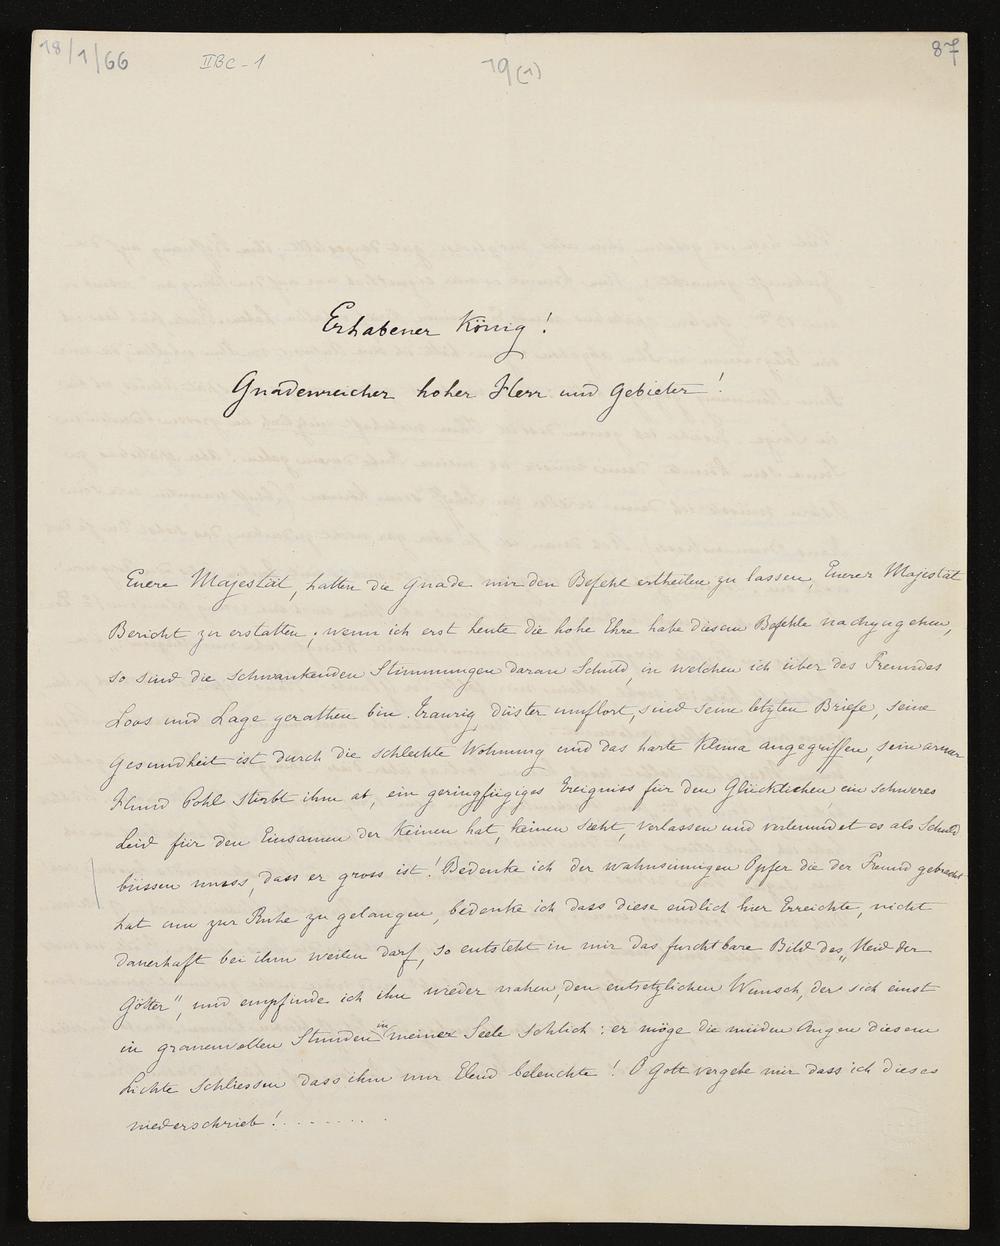 18/1/66 IIBC-1 19(1) 87
Erhabener König!
Gnadenreicher hoher Herr und Gebieter!
Euere Majestät, hatten die Gnade mir den Befehl ertheilen zu lassen, Euerer Majestät
Bericht zu erstatten; wenn ich erst heute die hohe Ehre habe diesem Befehle nachzugehen,
so sind die schwankenden Stimmungen daran Schuld, in welchen ich über des Freundes
Loos und Lage gerathen bin. Traurig, düster umflort, sind seine letzten Briefe, seine
Gesundheit ist durch die schlechte Wohnung und das harte Klima angegriffen, sein armer
Hund Pohl stirbt ihm ab, ein geringfügiges Ereigniss für den Glücklichen ein schweres
Leid für den Einsamen der Keinen hat, keinen sieht, verlassen und verleumdet es als Schuld
büssen muss, dass er gross ist! Bedenke ich der wahnsinnigen Opfer die der Freund gebracht
hat um zur Ruhe zu gelangen, bedenke ich dass diese endlich hier Erreichte, nicht
dauerhaft bei ihm weilen darf, so entsteht in mir das furchtbare Bild des „Neid der
Götter“, und empfinde ich ihn wieder nahen, den entsetzlichen Wunsch, der sich einst
in grauenvollen Stunden in meiner Seele schlich: er möge die müden Augen diesem
Lichte schliessen dass ihm nur Elend beleuchte! O Gott vergebe mir dass ich dieses
niederschrieb! . . . . . . . .